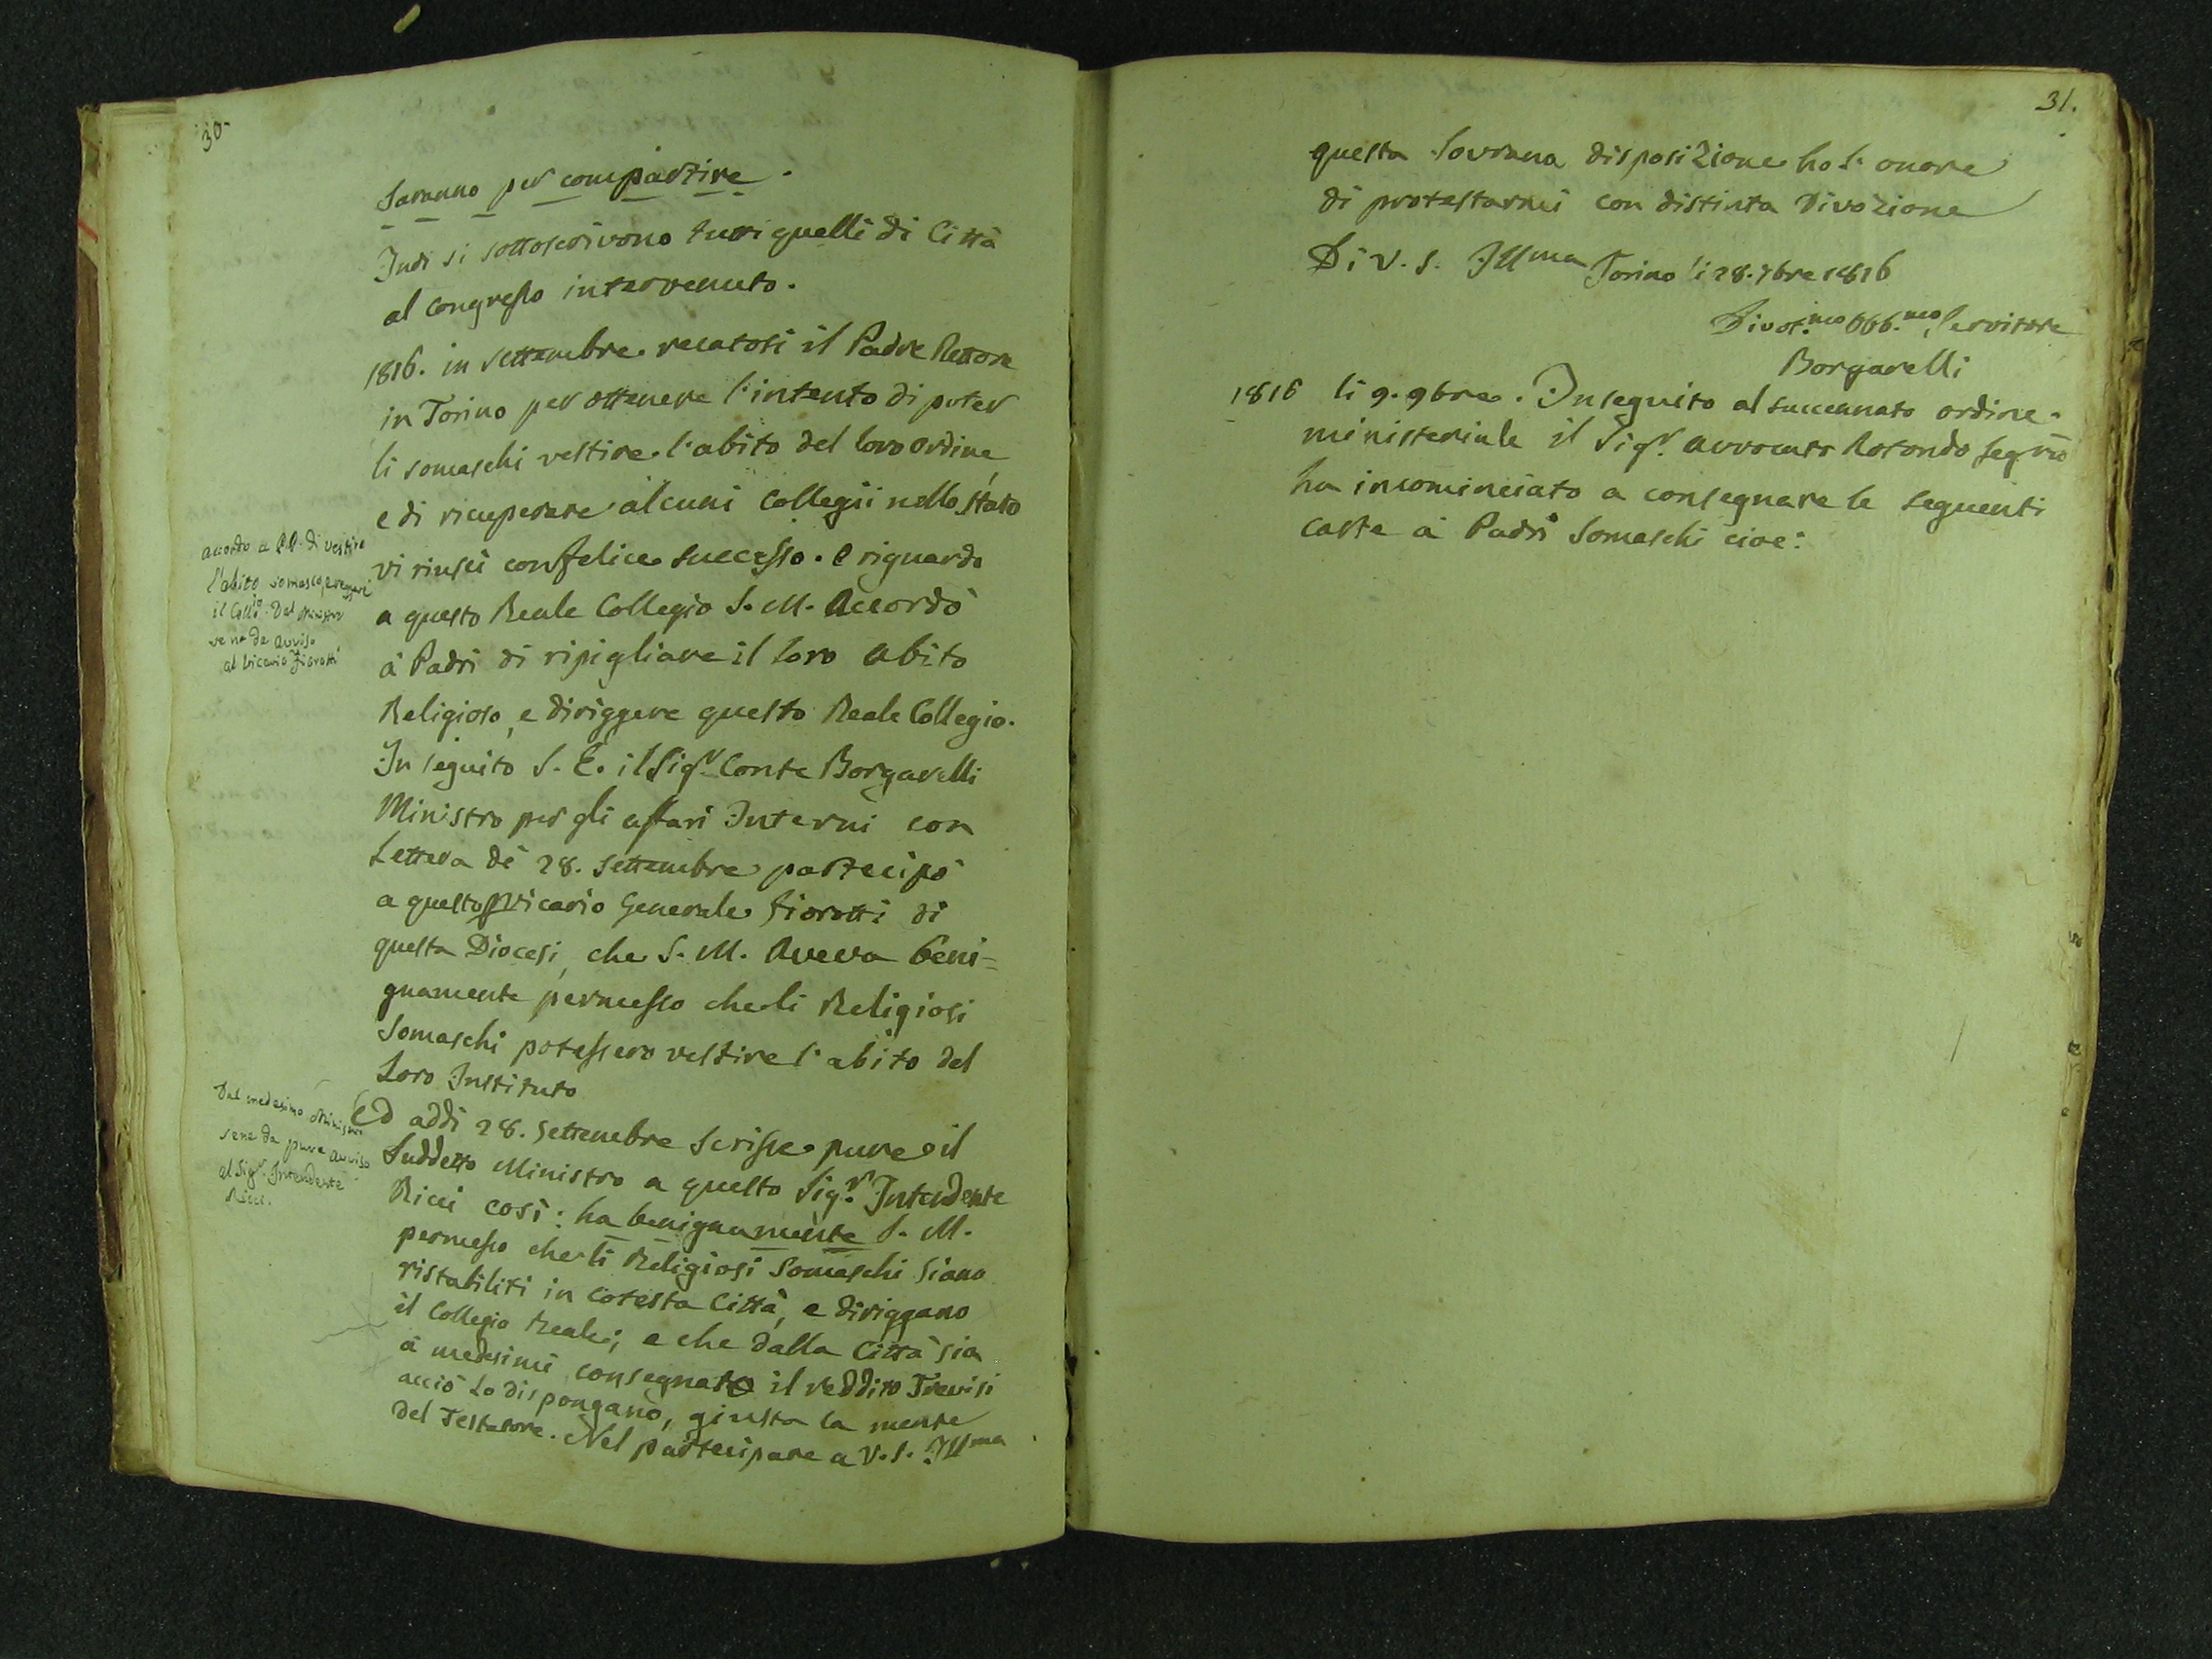 30
saranno per compartire.
Indi si sottoscrivono tutti quelli di Città
al congresso intervenuto.
1816. in settembre recatosi il Padre Rettore
in Torino per ottenere l'intento di poter
li somaschi vestire l'abito del loro ordine
e di ricuperare alcuni Collegii nello stato
vi riuscì con felice successo. e riguardo
a questo Reale Collegio S. M. Accordò
à Padri di ripigliare il loro abito
Religioso, e diriggere questo Reale Collegio.
In seguito S. E. il Sigr. Conte Borgarelli
Ministro per gli affari Interni con
Lettera dè 28. settembre partecipò
a questo Vicario Generale fiorotti di
questa Diocesi, che S. M. Aveva beni=
gnamente permesso che li Religiosi
Somaschi potessero vestire l'abito del
Loro Instituto
Ed addi 28. settembre scrisse pure il
Suddetto Ministro a questo Sigr. Intendente
Ricci così: ha benignamente S. M.
permesso che li Religiosi Somaschi siano
ristabiliti in cotesta Città, e diriggano
il Collegio Reale; e che dalla Città sia
à medesimi consegnato il reddito Trevisi
acciò Lo dispongano, giusta la mente
del Testatore. Nel partecipare a V. S. Illma
accordo a PP. di vestire
l'abito somasco, e reggere
il Collio. Dal Ministro
se ne da avviso
al Vicario Fiorotti
Dal medesimo Ministro
sene da pure avviso
al Sigr. Intendente
Ricci.
31.
questa Sovrana disposizione ho l'onore
di protestarmi con distinta Divozione
Di V. S. Illma Torino li 28. 7bre 1816
Divot.mo Obb.mo Servitore
Borgarelli
1816 li 9. 9bre. In seguito al succennato ordine
ministeriale il Sigr. Avvocato Rotondo Segrio
ha incominciato a consegnare le seguenti
carte à Padri Somaschi cioe: